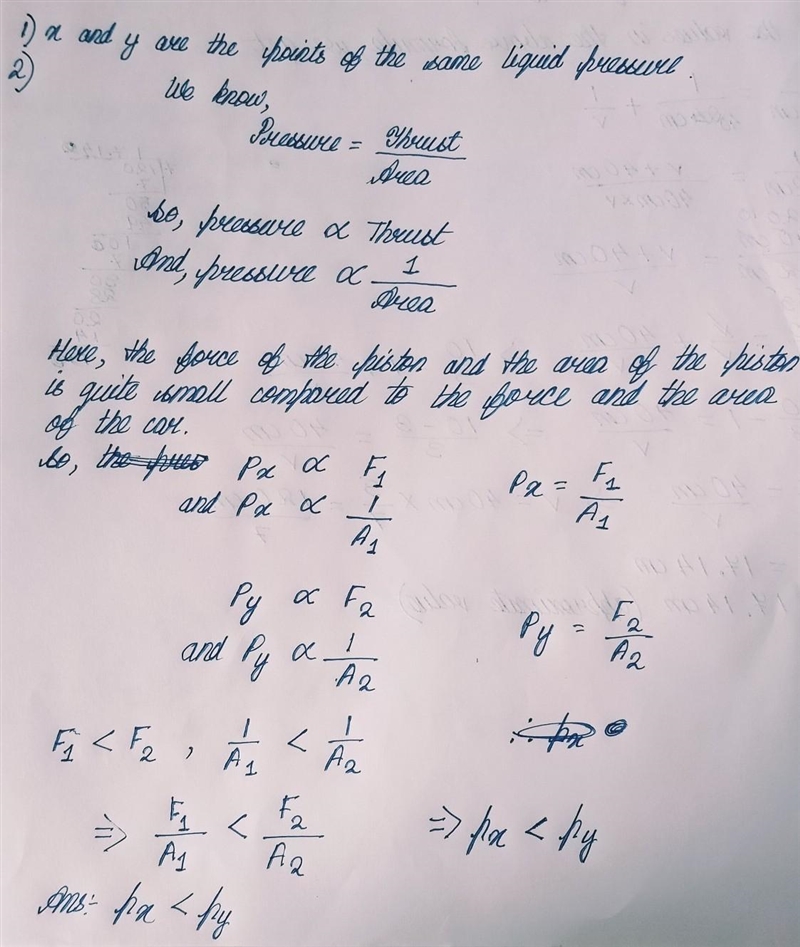 1) x and y are the points of the same liquid pressure.
2)
We know,
Pressure = Thrust / Area
So, pressure ∝ Thrust
And, pressure ∝ 1 / Area
Here, the force of the piston and the area of the piston
is quite small compared to the force and the area
of the car.
So, Px ∝ F1 Px = F1 / A1
and Px ∝ 1 / A1
Py ∝ F2 Py = F2 / A2
and Py ∝ 1 / A2
F1 < F2 , 1 / A1 < 1 / A2 ∴ px
=> F1 / A1 < F2 / A2 => px < py
Ans:- px < py
= 17.14 cm